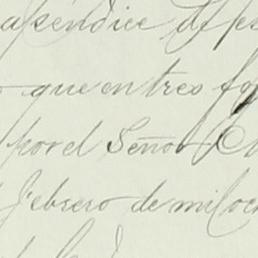 apéndice de
que en tres
por el Señor
Febrero de mil